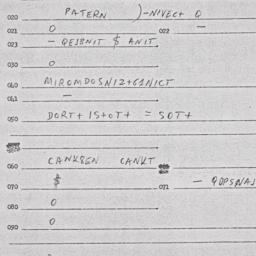 020 PATERN )-NIVECT Q
021 0 022 —
023 - QESBNIT $ ANIT
030 0
040 MIROMDOSNIZ+GINICT
041 —
050 DORT+ IS+OT+ = SOT+
060 CANKSEN CANKT
070 $ 071 - QOPSNAJ
080 0
090 0